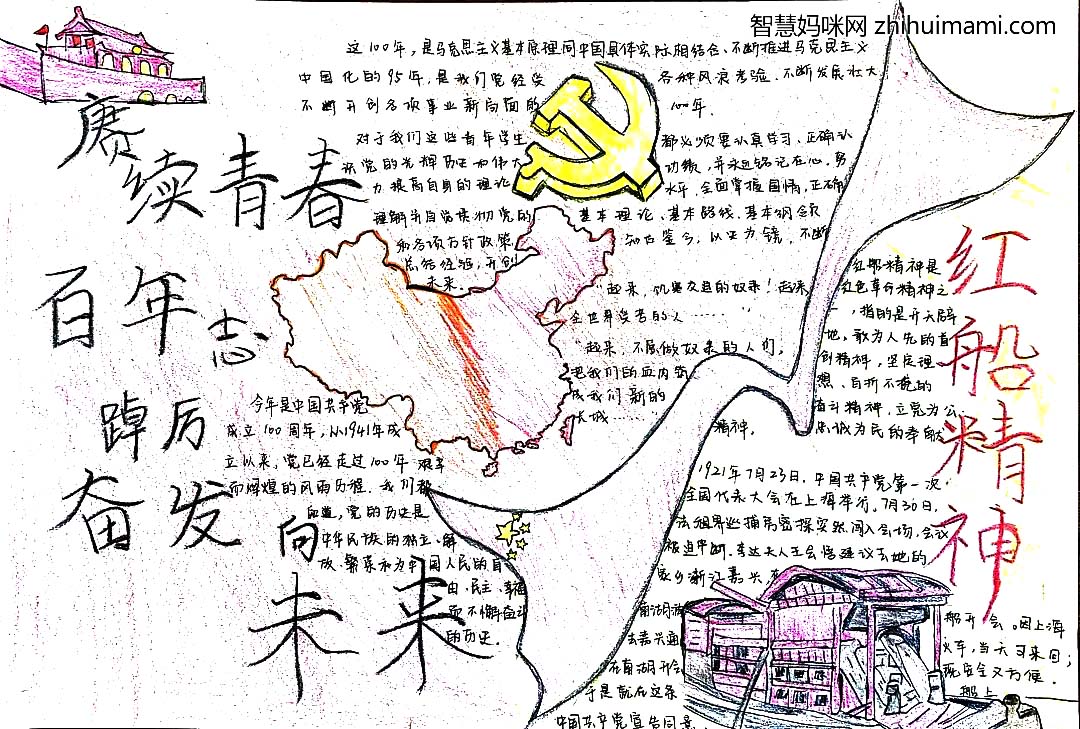 智慧妈咪网 zhihuimami.com
这100年，是马克思主义基本原理同中国具体实际相结合、不断推进马克思主义
中国化的95年，是我们党经受各种风浪考验、不断发展壮大
不断开创各项事业新局面的100年.
对于我们这些青年学生都必须要认真学习、正确认
识党的光辉历史和伟大功绩，并永远铭记在心，努
力提高自身的理论水平，全面掌握国情，正确
理解并自觉贯彻党的基本理论、基本路线、基本纲领
和各项方针政策，知古鉴今，以史为镜，不断
总结经验，开创
未来.
赓续青春
百年志
踔厉
奋发向
未来
起来，饥寒交迫的奴隶！起来
全世界受苦的人……
"起来，不愿做奴隶的人们，
把我们的血肉筑
成我们新的
长城……
红船精神
红船精神是
红色革命精神之
一，指的是开天辟
地、敢为人先的首
创精神，坚定理
想、百折不挠的
奋斗精神，立党为公、
忠诚为民的奉献
精神。
今年是中国共产党
成立100周年，从1941年成
立以来，党已经走过100年艰辛
而辉煌的风雨历程. 我们都
知道，党的历史是
中华民族的独立、解
放、繁荣和为中国人民的自
由、民主、幸福
而不懈奋斗
的历史.
1921年7月23日，中国共产党第一次
全国代表大会在上海举行。7月30日，
法租界巡捕房密探突然闯入会场，会议
被迫中断. 李达夫人王会悟建议去她的
家乡浙江嘉兴，在
南湖游船开会。因上海
去嘉兴通火车，当天可来回；
在南湖开会既安全又方便.
于是就在这条船上
中国共产党宣告同意